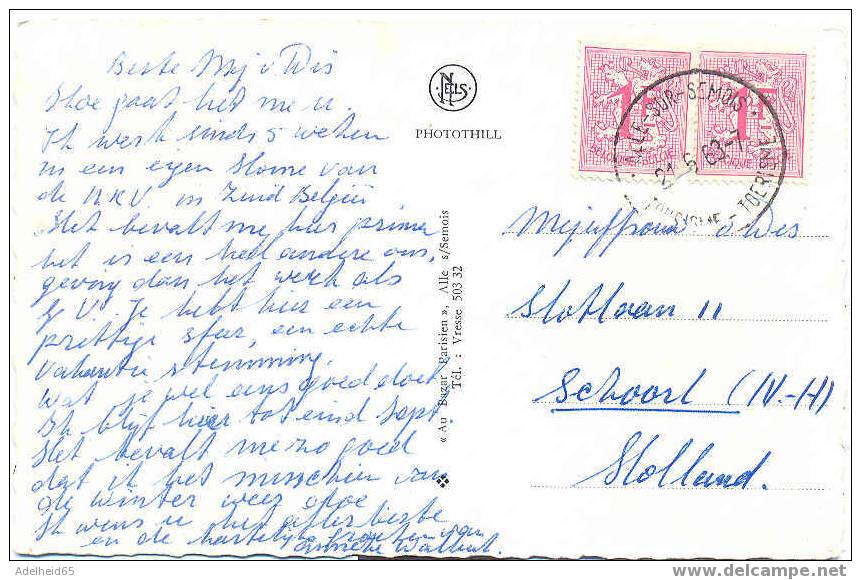 Beste Mej v Wis
Hoe gaat het me u.
Ik werk sinds 5 weken
in een eigen Home van
de N.R.V. in Zuid België
Het bevalt me hier prima
het is een heel andere om,
geving dan het werk als
G V. Je hebt hier een
prettige sfeer, een echte
vakantie stemming,
wat je wel eens goed doet
Ik blijf hier tot eind Sept.
Het bevalt me zo goed
dat ik het misschien van
de winter weer doe
Ik wens u het allerbeste
en de hartelijke groeten van
NELS
PHOTOTHILL
« Au Bazar Parisien », Alle s/Semois
Tél. : Vresse 503 32
1F
1F
BELGIQUE BELGIE
ALLE-SUR-SEMOIS
21 5 63-7
TOURISME - TOERISME
Mejuffrouw v Wis
Slotlaan 11
Schoorl (N-H)
Holland.
Adelheid65
www.delcampe.net